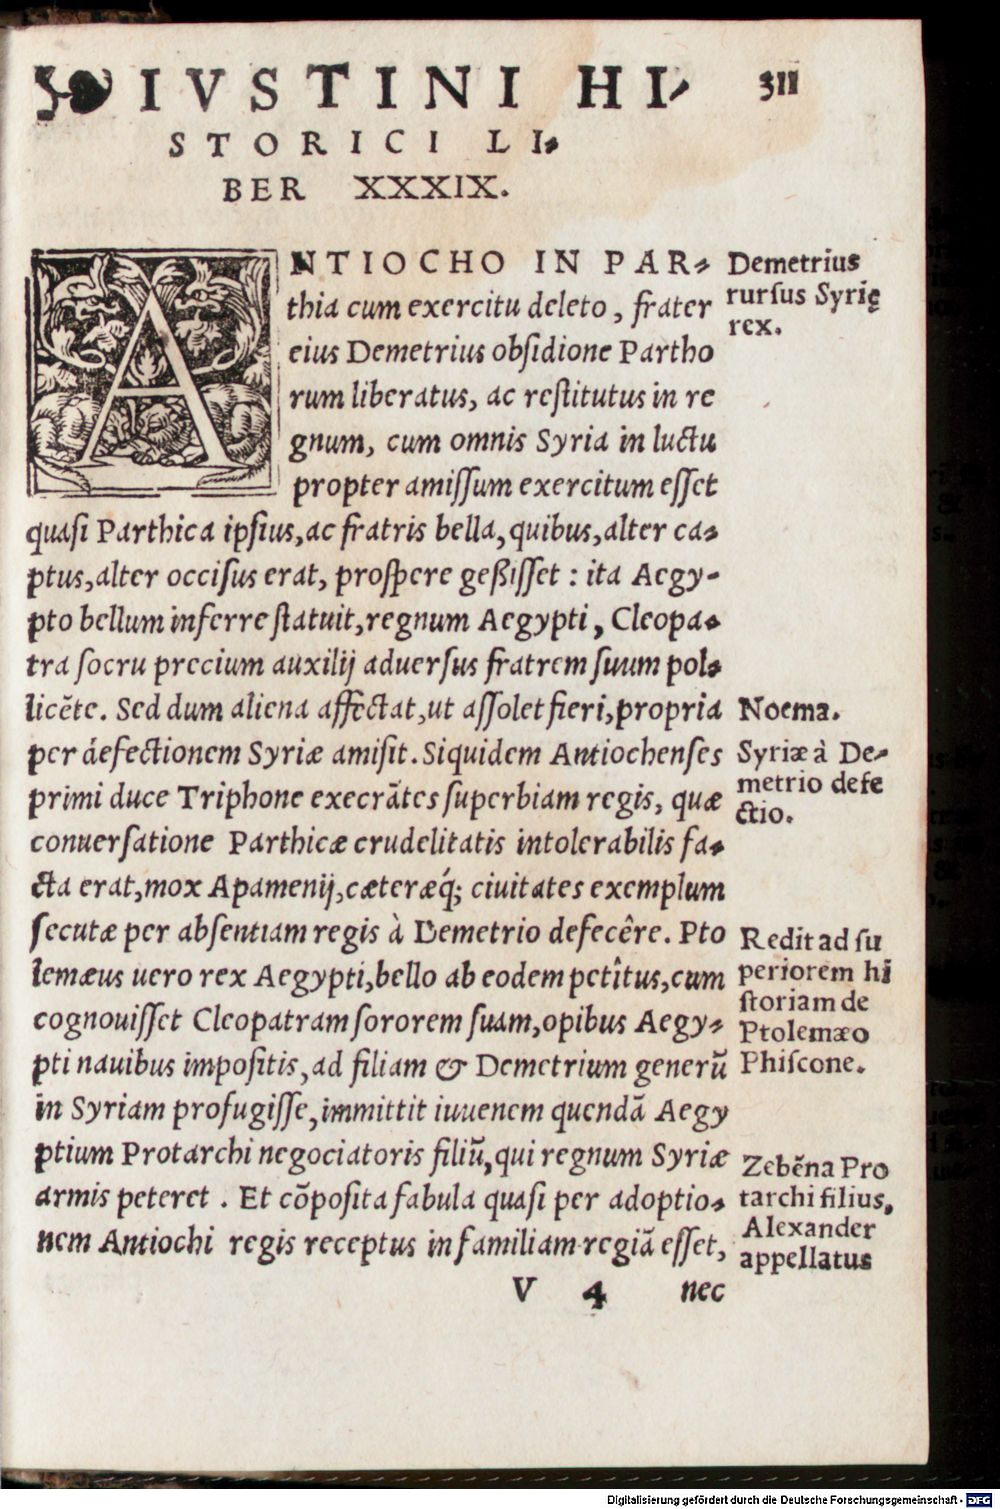 IVSTINI HI-
311
STORICI LI-
BER XXXIX.
ANTIOCHO IN PAR-
thia cum exercitu deleto, frater
eius Demetrius obſidione Partho
rum liberatus, ac reſtitutus in re
gnum, cum omnis Syria in luctu
propter amiſſum exercitum eſſet
quaſi Parthica ipſius, ac fratris bella, quibus, alter ca-
ptus, alter occiſus erat, proſpere geßiſſet: ita Aegy-
pto bellum inferre ſtatuit, regnum Aegypti, Cleopa-
tra ſocru precium auxilij aduerſus fratrem ſuum pol-
licẽte. Sed dum aliena affectat, ut aſſolet fieri, propria
per defectionem Syriæ amiſit. Siquidem Antiochenſes
primi duce Triphone execrãtes ſuperbiam regis, quæ
conuerſatione Parthicæ crudelitatis intolerabilis fa-
cta erat, mox Apamenij, cæteræq́; ciuitates exemplum
ſecutæ per abſentiam regis à Demetrio defecêre. Pto
lemæus uero rex Aegypti, bello ab eodem petîtus, cum
cognouiſſet Cleopatram ſororem ſuam, opibus Aegy-
pti nauibus impoſitis, ad filiam & Demetrium generũ
in Syriam profugiſſe, immittit iuuenem quendã Aegy
ptium Protarchi negociatoris filiũ, qui regnum Syriæ
armis peteret. Et cõpoſita fabula quaſi per adoptio-
nem Antiochi regis receptus in familiam regiã eſſet,
V 4 nec
Demetrius
rurſus Syrię
rex.
Noema.
Syriæ à De-
metrio defe
ctio.
Redit ad ſu
periorem hi
ſtoriam de
Ptolemæo
Phiſcone.
Zebẽna Pro
tarchi filius,
Alexander
appellatus
Digitalisierung gefördert durch die Deutsche Forschungsgemeinschaft - DFG